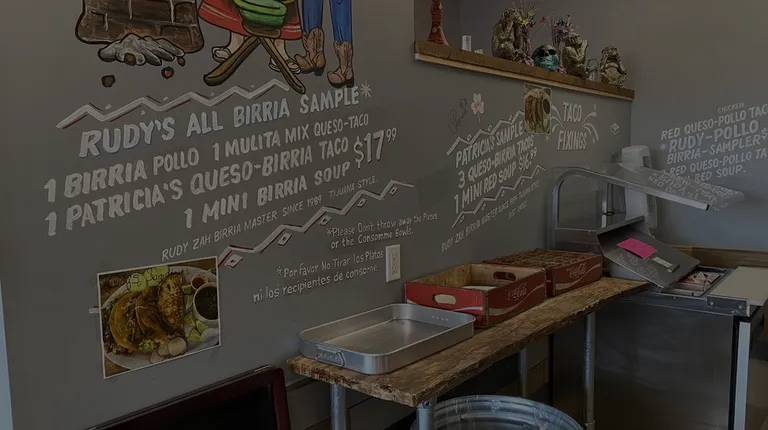 RUDY'S ALL BIRRIA SAMPLE*
1 BIRRIA POLLO 1 MULITA MIX QUESO-TACO
1 PATRICIA'S QUESO-BIRRIA TACO $17.99
1 MINI BIRRIA SOUP
RUDY ZAH BIRRIA MASTER SINCE 1989 TIJUANA STYLE.
*Please Don't throw away the Plates
or the Consomme Bowls.
*Por favor No Tirar los Platos
ni los recipientes de consome.
PATRICIA'S SAMPLE
3 QUESO-BIRRIA TACOS
1 MINI RED SOUP
RUDY ZAH BIRRIA MASTER SINCE
TACO
FIXINGS
CHICKEN
RED QUESO-POLLO TAC
*RUDY-POLLO
BIRRIA-SAMPLER $
RED QUESO-POLLO TA
RED SOUP.
Coca-Cola
Coca-Cola